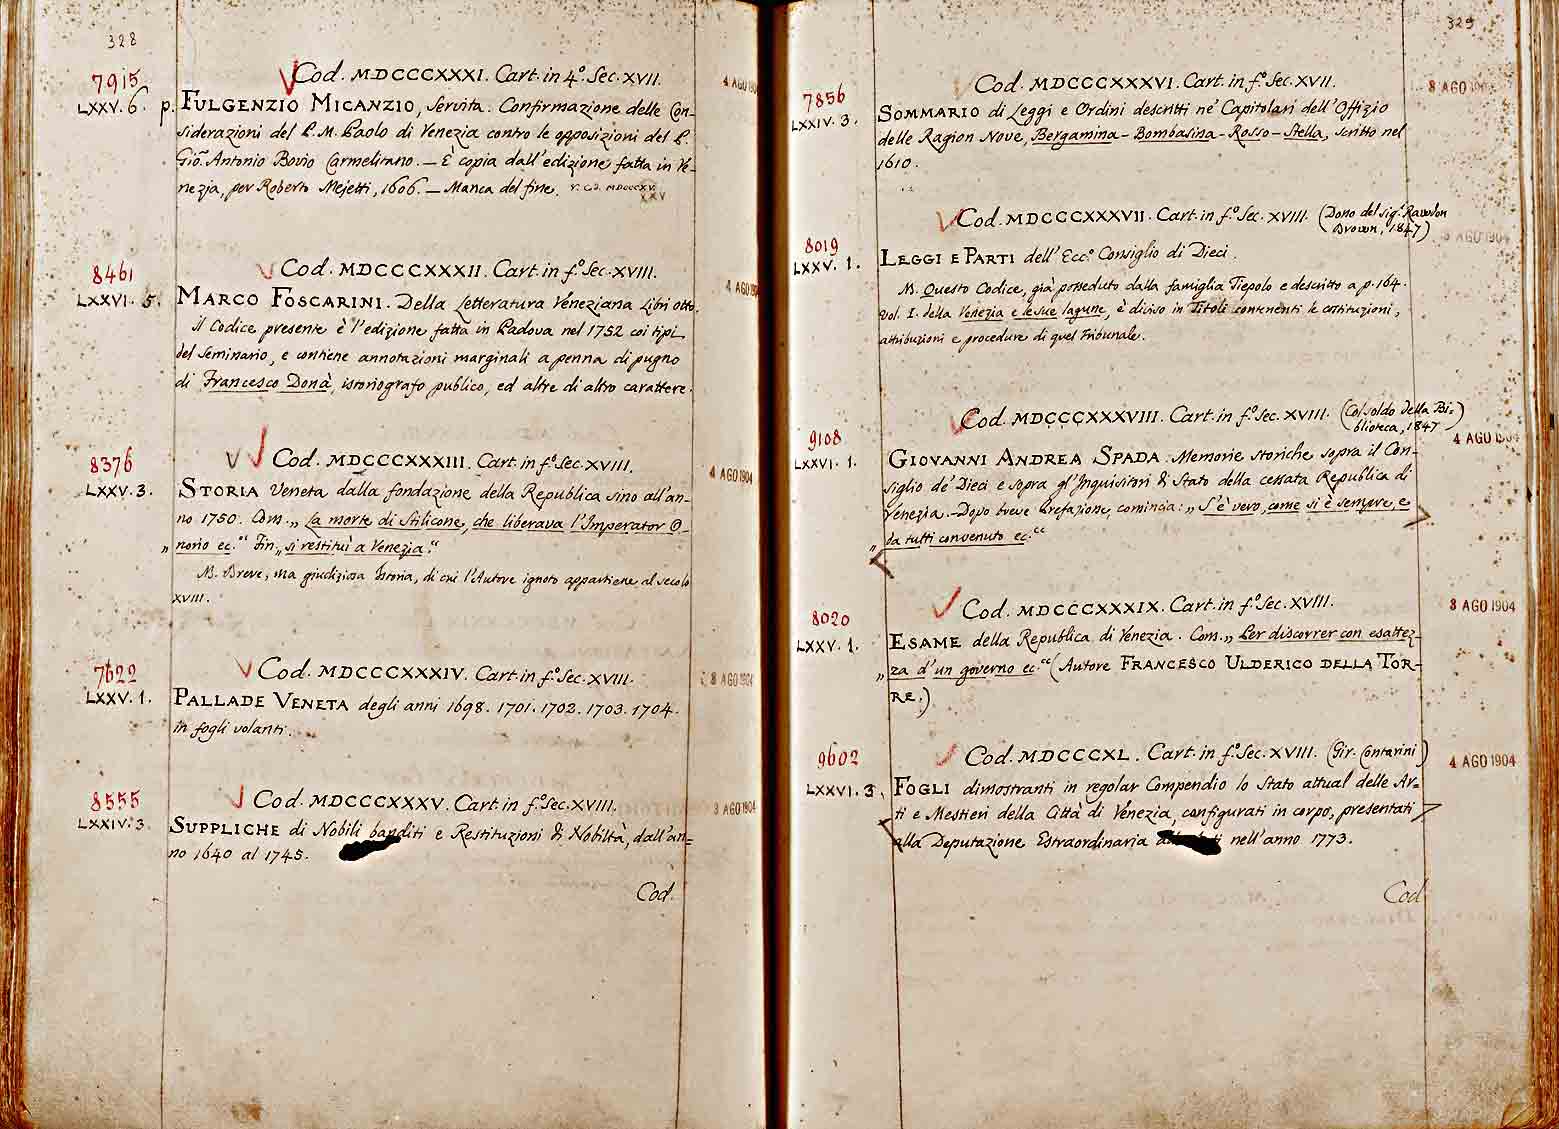 328
7915
LXXV. 6. p.
Cod. MDCCCXXXI. Cart. in 4.º Sec. XVII.
4 AGO 1904
FULGENZIO MICANZIO, Servita. Confirmazione delle Con-
siderazioni del P. M. Paolo di Venezia contro le opposizioni del P.
Gio. Antonio Bovio Carmelitano. — È copia dall'edizione fatta in Ve-
nezia, per Roberto Mejetti, 1606. — Manca del fine. V. Cod. MDCCCXV.
XXV
8461
LXXVI. 5.
Cod. MDCCCXXXII. Cart. in f.º Sec. XVIII.
4 AGO
MARCO FOSCARINI. Della Letteratura Veneziana Libri otto.
Il Codice presente è l'edizione fatta in Padova nel 1752 coi tipi
del Seminario, e contiene annotazioni marginali a penna di pugno
di Francesco Donà, istoriografo publico, ed altre di altro carattere.
8376
LXXV. 3.
Cod. MDCCCXXXIII. Cart. in f.º Sec. XVIII.
4 AGO 1904
STORIA Veneta dalla fondazione della Republica sino all'an-
no 1750. Com. „ La morte di Stilicone, che liberava l'Imperator O-
„ norio ec.“ Fin. „ si restituì a Venezia.“
N. Breve, ma giudiziosa Istoria, di cui l'Autore ignoto appartiene al secolo
XVIII.
7622
LXXV. 1.
Cod. MDCCCXXXIV. Cart. in f.º Sec. XVIII.
8 AGO 1904
PALLADE VENETA degli anni 1698. 1701. 1702. 1703. 1704.
in fogli volanti.
8555
LXXIV. 3.
Cod. MDCCCXXXV. Cart. in f.º Sec. XVIII.
3 AGO 1904
SUPPLICHE di Nobili banditi e Restituzioni di Nobiltà, dall'an=
no 1640 al 1745.
Cod.
329
7856
LXXIV. 3.
Cod. MDCCCXXXVI. Cart. in f.º Sec. XVII.
8 AGO 1904
SOMMARIO di Leggi e Ordini descritti ne' Capitolari dell'Offizio
delle Ragion Nove, Bergamina - Bombasina - Rosso - Stella, scritto nel
1610.
8019
LXXV. 1.
Cod. MDCCCXXXVII. Cart. in f.º Sec. XVIII. (Dono del sig.r Rawdon
Brown, 1847)
AGO 1904
LEGGI E PARTI dell'Ecc.º Consiglio di Dieci.
N. Questo Codice, già posseduto dalla famiglia Tiepolo e descritto a p. 164.
vol. I. della Venezia e le sue lagune, è diviso in Titoli contenenti le costituzioni,
attribuzioni e procedure di quel Tribunale.
9108
LXXVI. 1.
Cod. MDCCCXXXVIII. Cart. in f.º Sec. XVIII. (Col soldo della Bi-
blioteca, 1847)
4 AGO 1904
GIOVANNI ANDREA SPADA. Memorie storiche sopra il Con-
siglio de' Dieci e sopra gl'Inquisitori di Stato della cessata Republica di
Venezia. - Dopo breve Prefazione, comincia: „ S'è vero, come si è sempre, e
„ da tutti convenuto ec.“
8020
LXXV. 1.
Cod. MDCCCXXXIX. Cart. in f.º Sec. XVIII.
3 AGO 1904
ESAME della Republica di Venezia. Com. „ Per discorrer con esattez-
„ za d'un governo ec.“ (Autore FRANCESCO ULDERICO DELLA TOR-
RE.)
9602
LXXVI. 3.
Cod. MDCCCXL. Cart. in f.º Sec. XVIII. (Gir. Contarini)
4 AGO 1904
FOGLI dimostranti in regolar Compendio lo Stato attual delle Ar=
ti e Mestieri della Città di Venezia, configurati in corpo, presentati
alla Deputazione Estraordinaria nell'anno 1773.
Cod